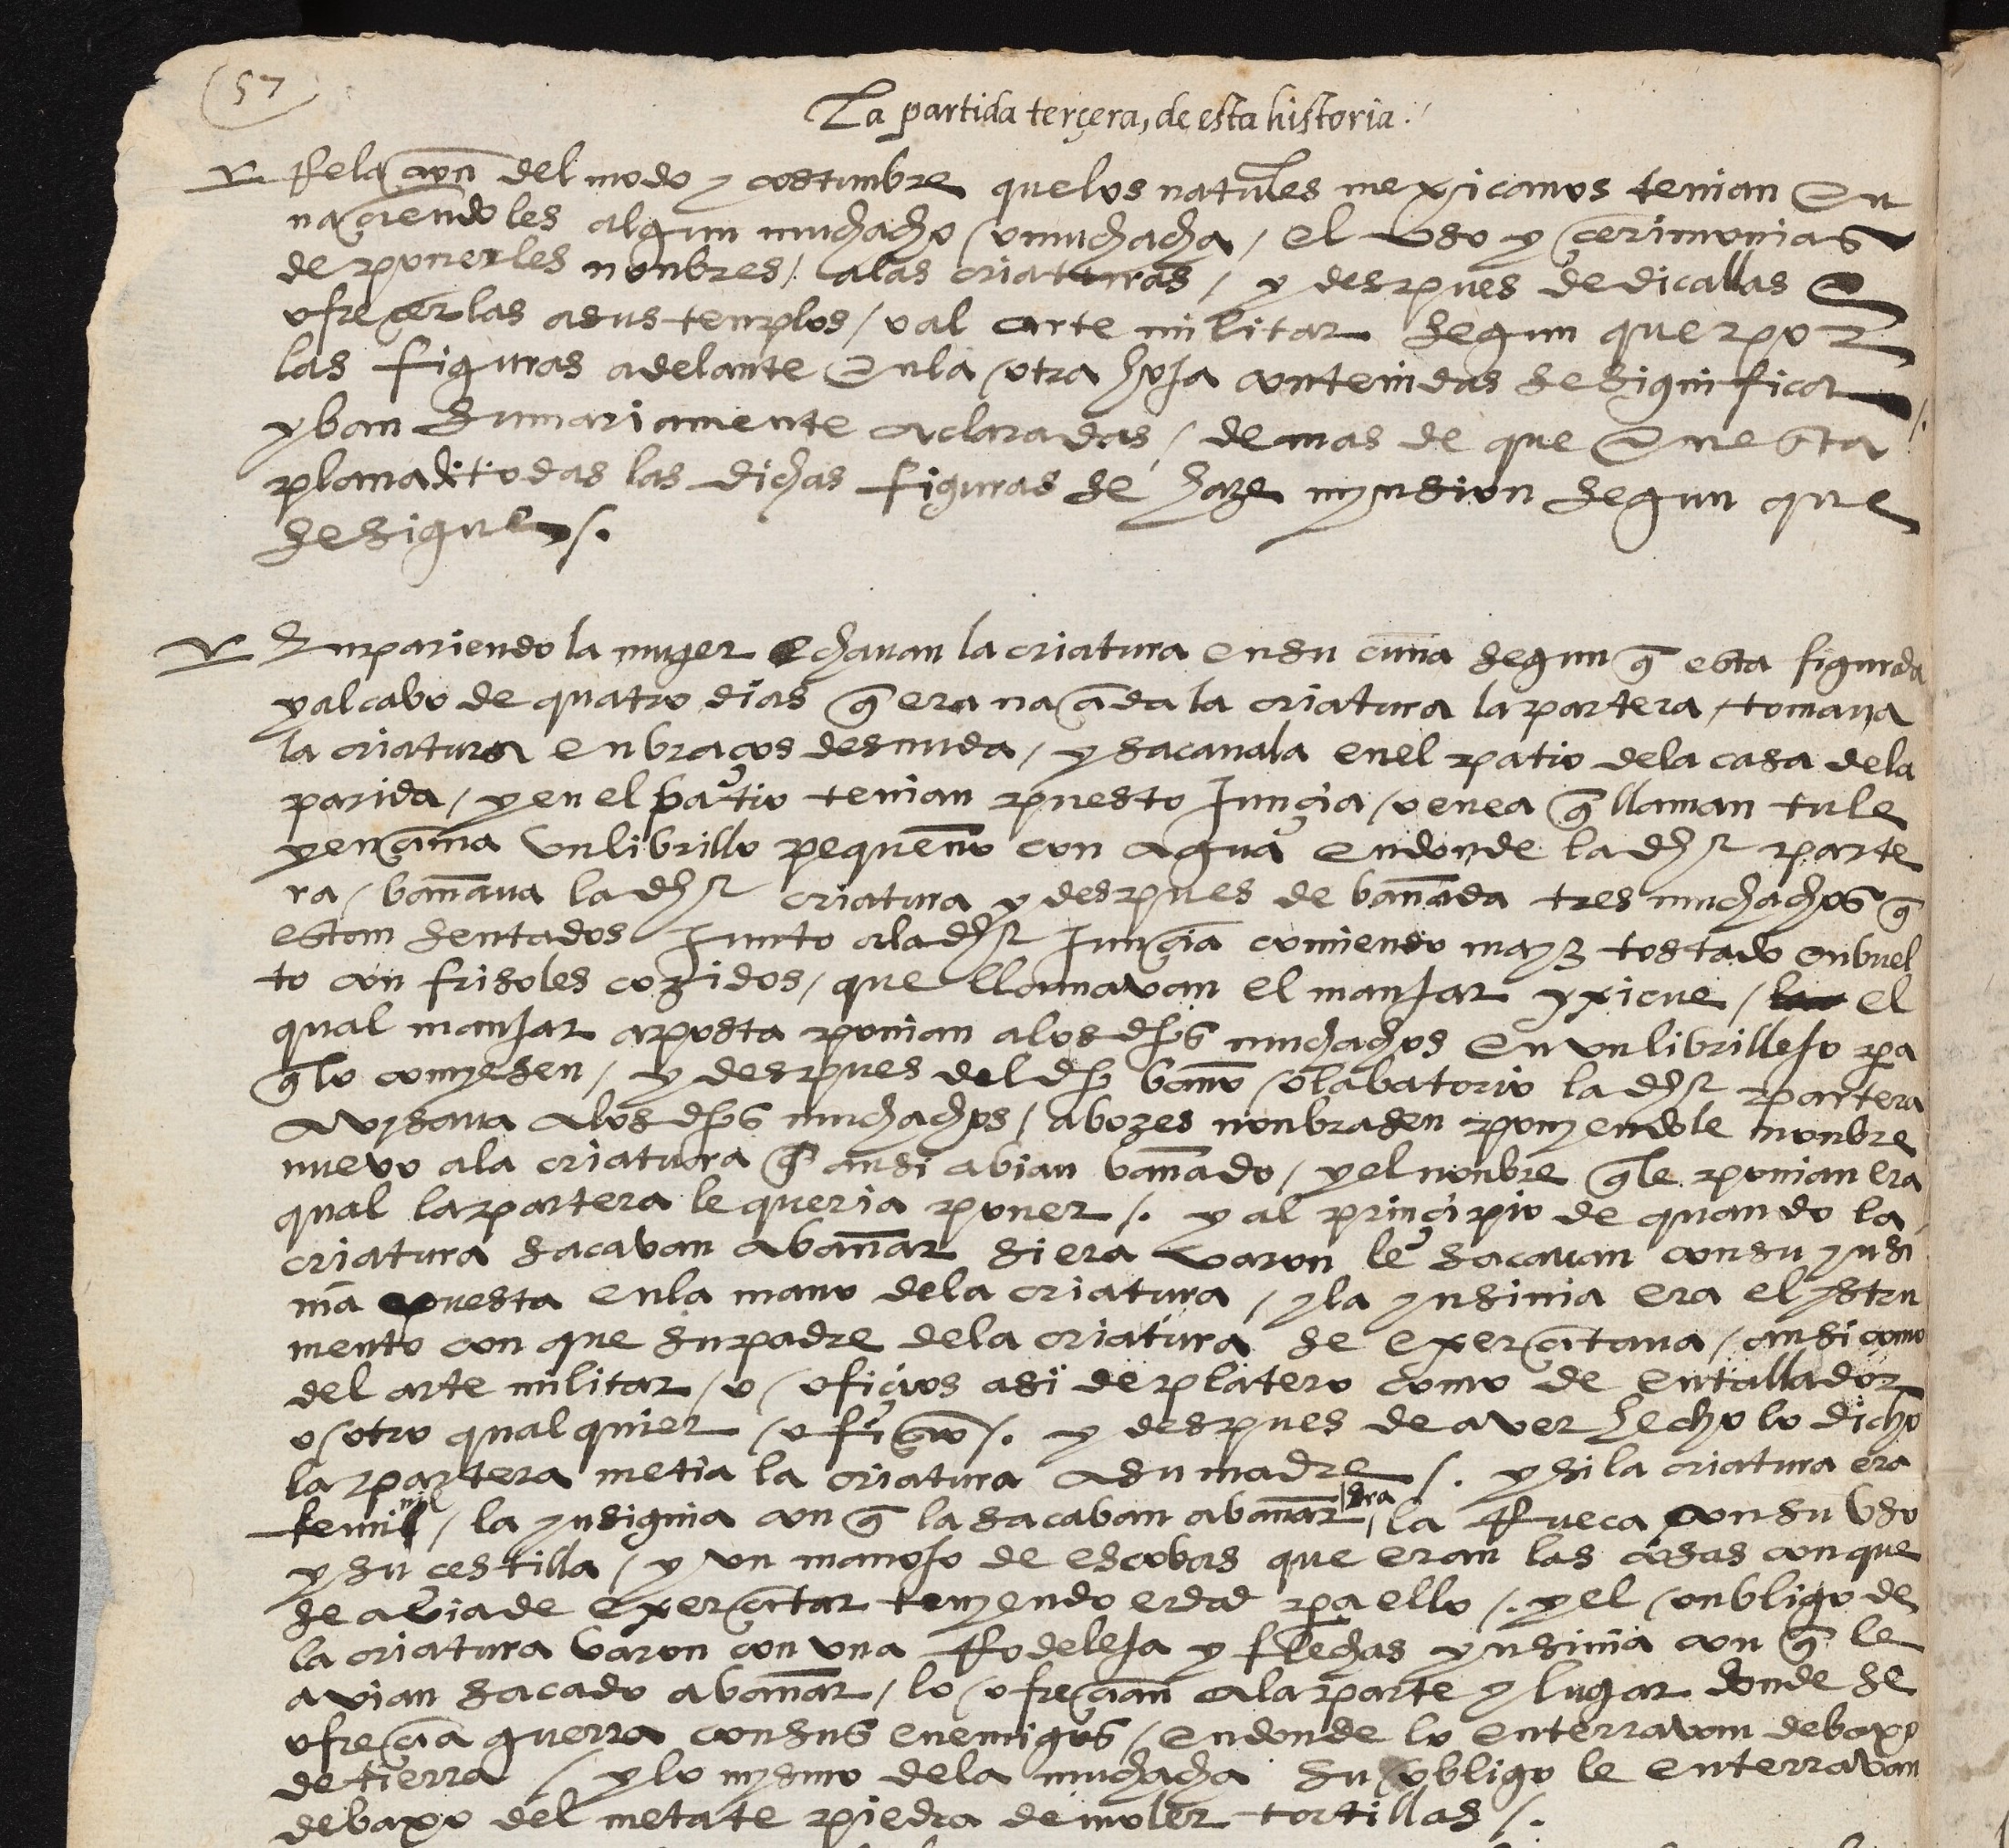 57
La partida terçera, de esta historia.
Relaçion del modo y costumbre que los natules mexicanos tenian en
naçiendoles algun muchacho o muchacha / el uso y çerimonias
de ponerles nonbres / a las criaturas / y despues dedicallas e
ofreçerlas a sus templos / o al arte militar segun que por
las figuras adelante en la otra hoja contenidas se significan
y ban sumariamente aclaradas / demas de que en esta
plana di todas las dichas figuras se haze mynsion segun que
se sigue /.
En pariendo la muger echauan la criatura en su cuna segun q̃ esta figurda
y al cabo de quatro dias q̃ era naçida la criatura la partera / tomaua
la criatura en braços desnuda / y sacauala en el patio de la casa de la
parida / y en el patio tenian puesto Junçia / o enea q̃ llaman tule
y ençima un librillo pequeño con agua en donde la dha parte
ra / bañaua la dha criatura y despues de bañada tres muchachos q̃
estan sentados Junto a la dha Junçia comiendo mayz tostado enbuel
to con frisoles cozidos / que llamavan el manJar yxicue / el
qual manJar aposta ponian a los dhos muchachos en un librilleJo pa
q̃ lo comyesen / y despues del dho baño o labatorio la dha partera
avysaua a los dhos muchachos / a bozes nonbrasen ponyendole nonbre
nuevo a la criatura q̃ ansi abian bañado / y el nonbre q̃ le ponian era
qual la partera le queria poner /. y al prinçipio de quando la
criatura sacavan a bañar si era varon le sacauan con su ynsi
nia puesta en la mano de la criatura / y la ynsinia era el ystru
mento con que su padre de la criatura se exerçitaua / ansi como
del arte militar / o ofiçios asi de platero como de entallador
o otro qual quier / ofiçio /. y despues de aver hecho lo dicho
la partera metia la criatura a su madre /. y si la criatura era
feminil / la ynsignia con q̃ la sacaban a bañar / era la Rueca con su uso
y su cestilla / y un manoJo de escobas que eran las cosas con que
se avia de exerçitar tenyendo edad pa ello /. y el onbligo de
la criatura varon con una RodeleJa y flechas ynsinia con q̃ le
avian sacado a bañar / lo ofreçian a la parte y lugar donde se
ofreçia guerra con sus enemigos / en donde lo enterravan debaxo
de tierra / y lo mysmo de la muchacha su obligo le enterravan
debaxo del metate piedra de moler tortillas /.